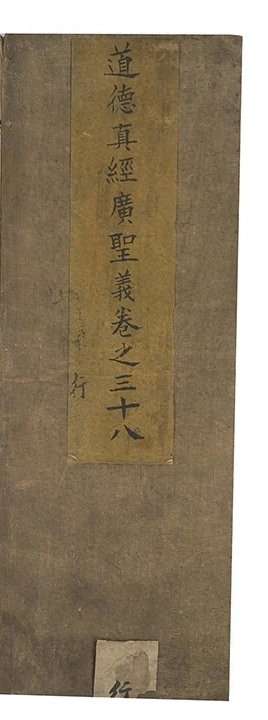 道德真經廣聖義卷之三十八
行
行